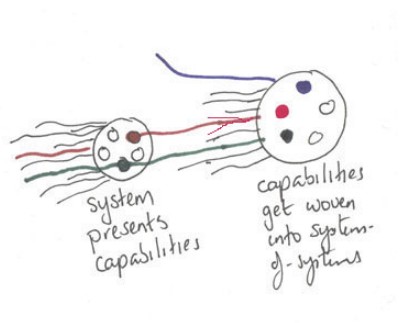 system
presents
capabilities
capabilities
get woven
into system-
of-systems